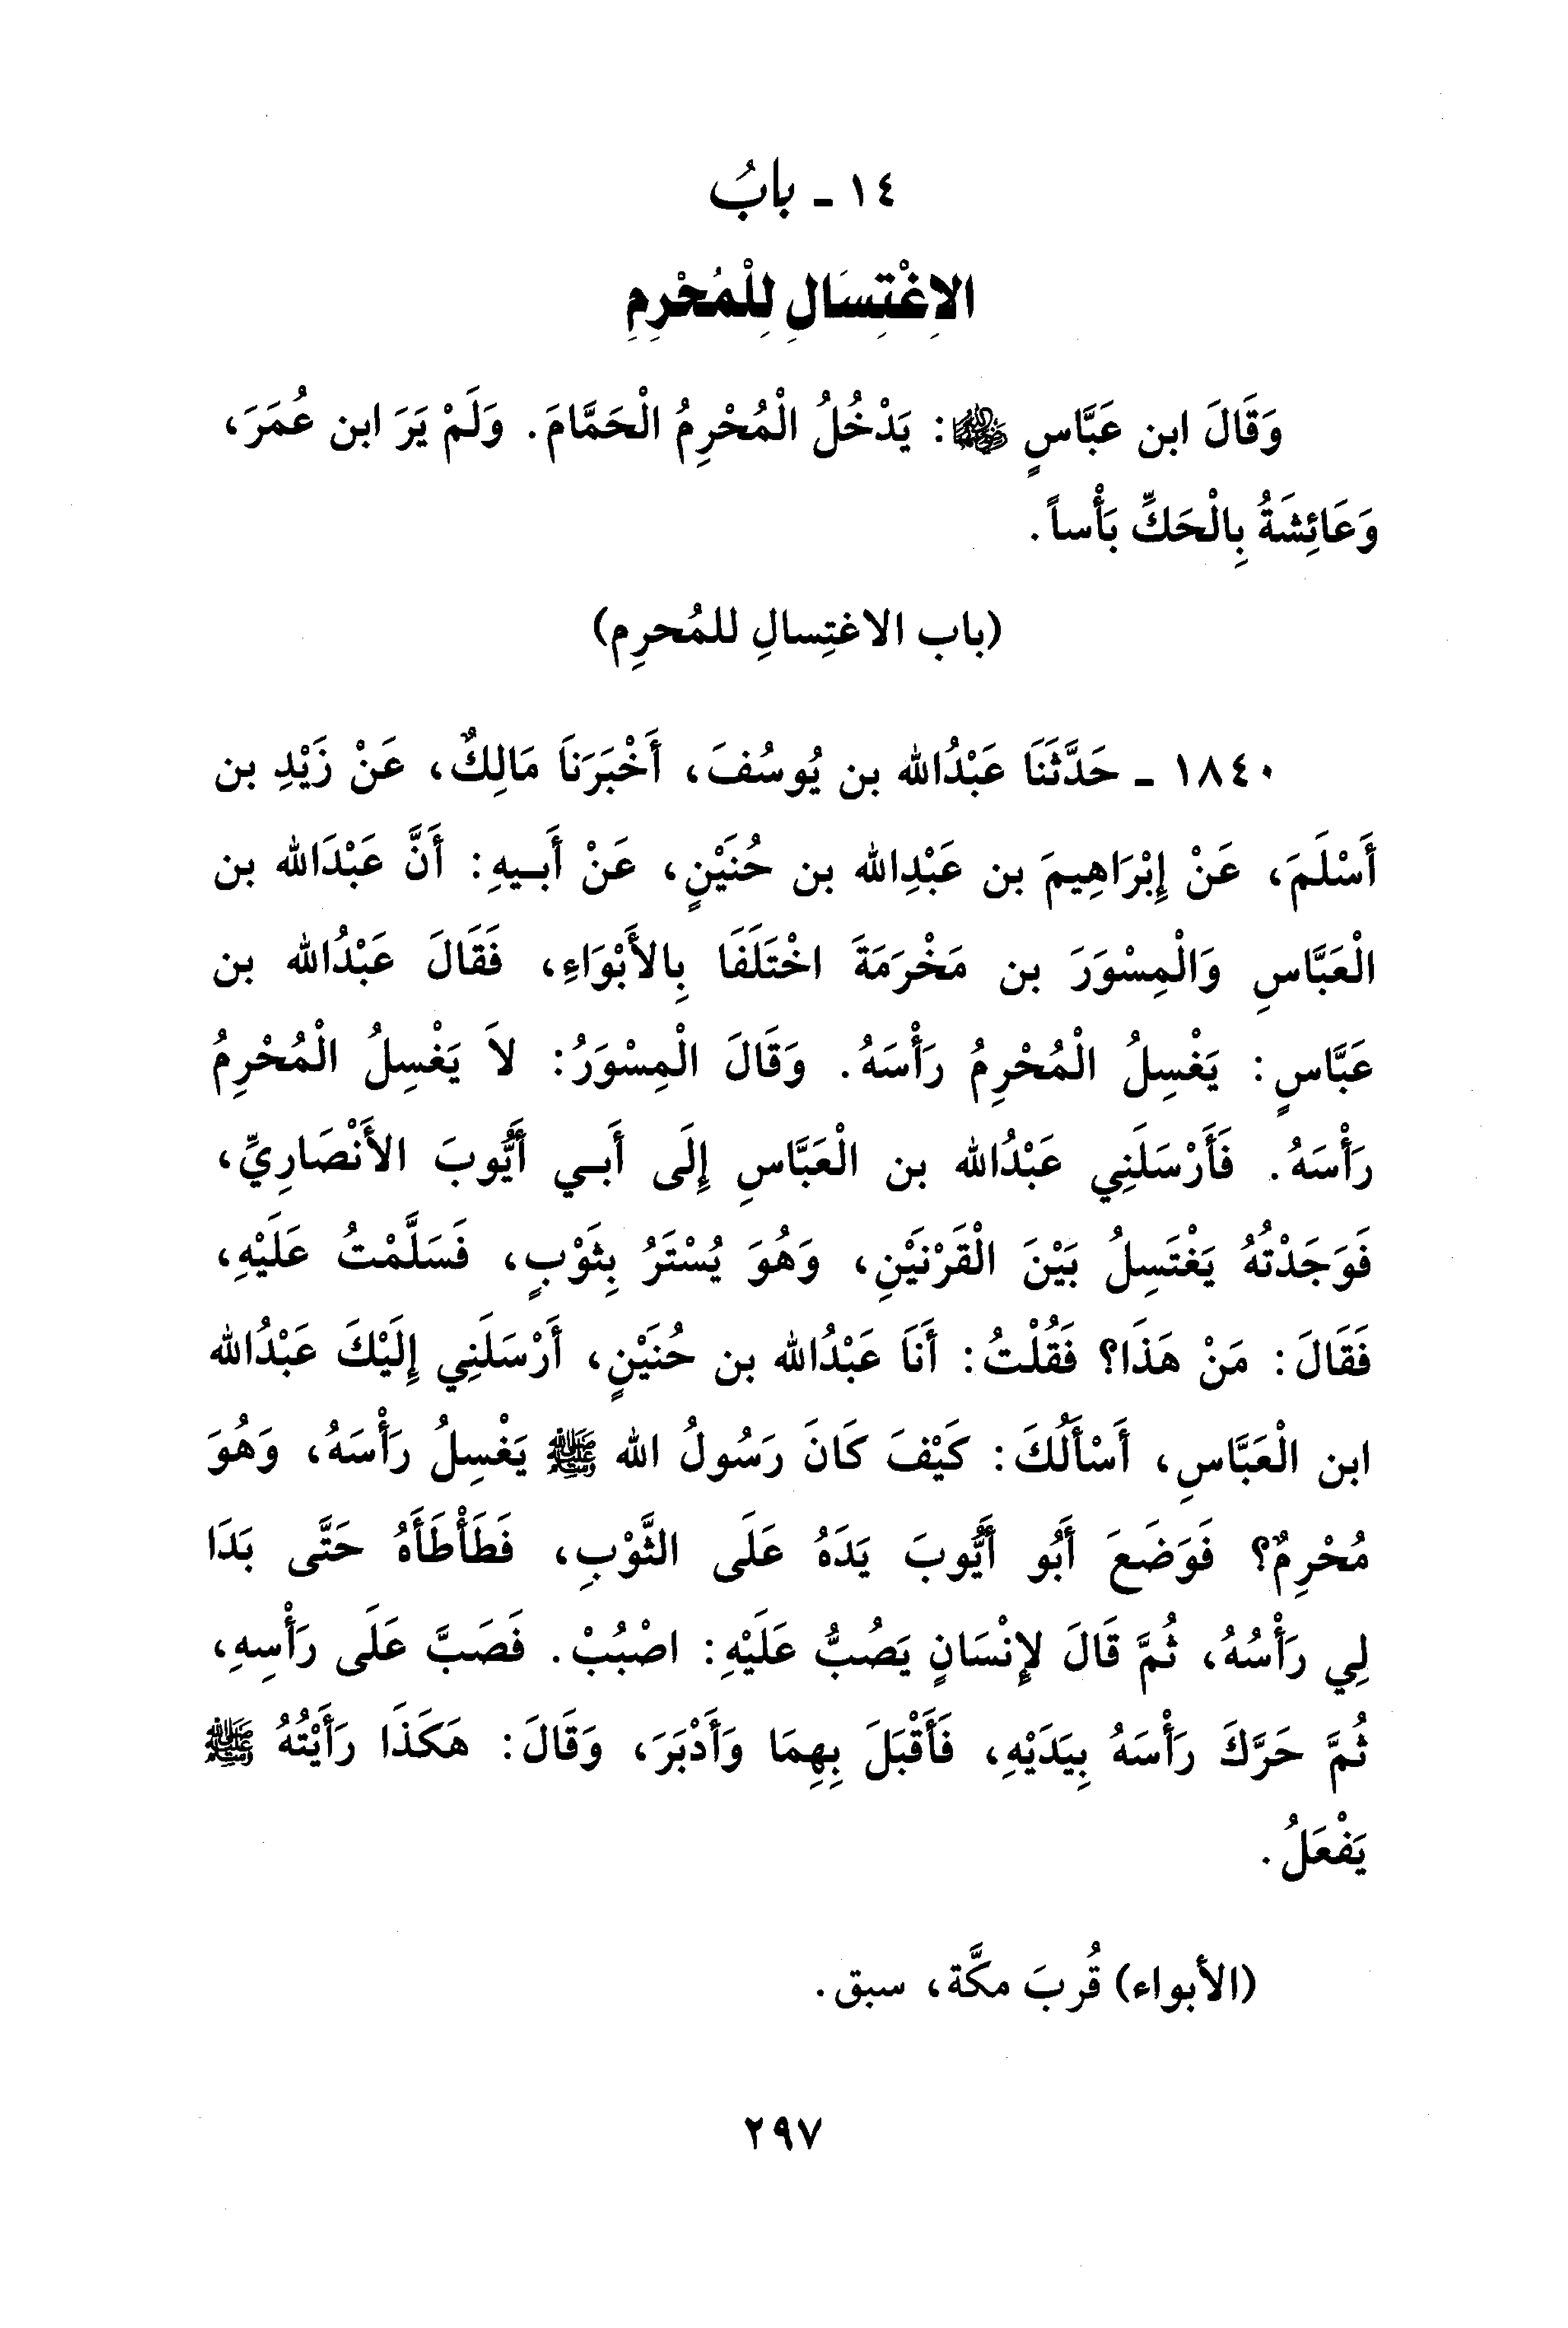 ١٤ ـ بابُ
الاِغْتِسَالِ لِلْمُحْرِمِ
وَقَالَ ابن عَبَّاسٍ رضي الله عنهما: يَدْخُلُ الْمُحْرِمُ الْحَمَّامَ. وَلَمْ يَرَ ابن عُمَرَ،
وَعَائِشَةُ بِالْحَكِّ بَأْساً.
(باب الاغتِسالِ للمُحرِم)
١٨٤٠ ـ حَدَّثَنَا عَبْدُالله بن يُوسُفَ، أَخْبَرَنَا مَالِكٌ، عَنْ زَيْدِ بن
أَسْلَمَ، عَنْ إِبْرَاهِيمَ بن عَبْدِالله بن حُنَيْنٍ، عَنْ أَبـيهِ: أَنَّ عَبْدَالله بن
الْعَبَّاسِ وَالْمِسْوَرَ بن مَخْرَمَةَ اخْتَلَفَا بِالأَبْوَاءِ، فَقَالَ عَبْدُالله بن
عَبَّاسٍ: يَغْسِلُ الْمُحْرِمُ رَأْسَهُ. وَقَالَ الْمِسْوَرُ: لاَ يَغْسِلُ الْمُحْرِمُ
رَأْسَهُ. فَأَرْسَلَنِي عَبْدُالله بن الْعَبَّاسِ إِلَى أَبـي أَيُّوبَ الأَنْصَارِيِّ،
فَوَجَدْتُهُ يَغْتَسِلُ بَيْنَ الْقَرْنَيْنِ، وَهُوَ يُسْتَرُ بِثَوْبٍ، فَسَلَّمْتُ عَلَيْهِ،
فَقَالَ: مَنْ هَذَا؟ فَقُلْتُ: أَنَا عَبْدُالله بن حُنَيْنٍ، أَرْسَلَنِي إِلَيْكَ عَبْدُالله
ابن الْعَبَّاسِ، أَسْأَلُكَ: كَيْفَ كَانَ رَسُولُ الله ﷺ يَغْسِلُ رَأْسَهُ، وَهُوَ
مُحْرِمٌ؟ فَوَضَعَ أَبُو أَيُّوبَ يَدَهُ عَلَى الثَّوْبِ، فَطَأْطَأَهُ حَتَّى بَدَا
لِي رَأْسُهُ، ثُمَّ قَالَ لإِنْسَانٍ يَصُبُّ عَلَيْهِ: اصْبُبْ. فَصَبَّ عَلَى رَأْسِهِ،
ثُمَّ حَرَّكَ رَأْسَهُ بِيَدَيْهِ، فَأَقْبَلَ بِهِمَا وَأَدْبَرَ، وَقَالَ: هَكَذَا رَأَيْتُهُ ﷺ
يَفْعَلُ.
(الأبواء) قُربَ مكَّة، سبق.
٢٩٧